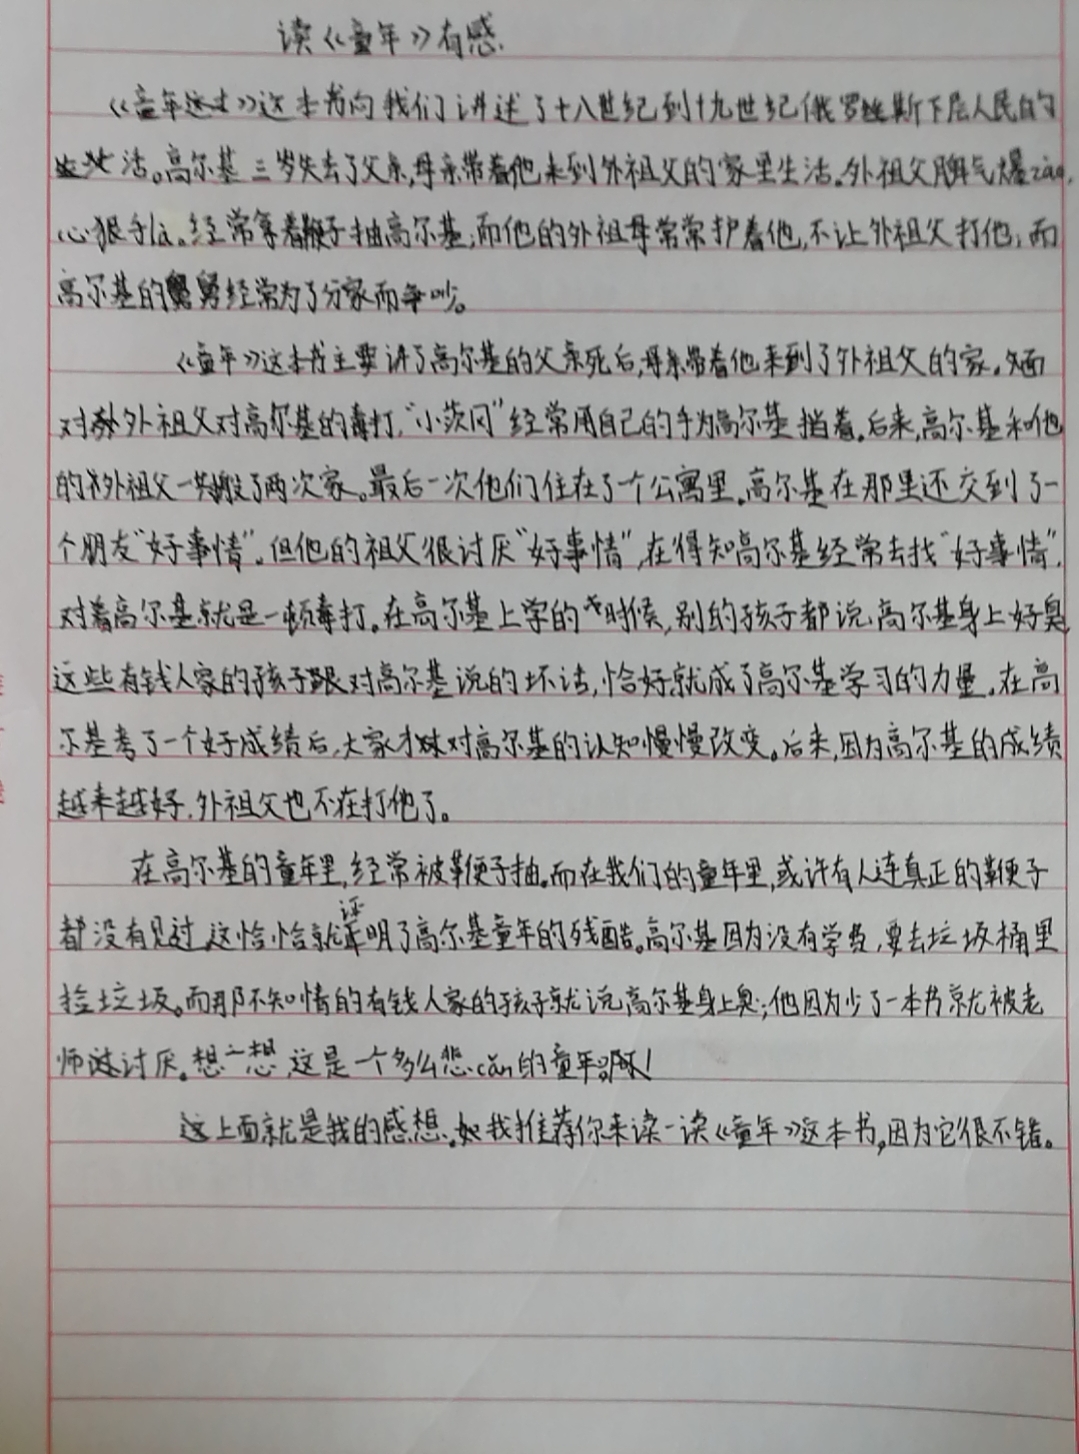 读《童年》有感
《童年这本》这本书向我们讲述了十八世纪到十九世纪俄罗斯下层人民的
生活。高尔基三岁失去了父亲,母亲带着他来到外祖父的家里生活。外祖父脾气爆zào,
心狠手là。经常拿着鞭子抽高尔基;而他的外祖母常常护着他,不让外祖父打他;而
高尔基的舅舅经常为了分家而争吵。
《童年》这本书主要讲了高尔基的父亲死后,母亲带着他来到了外祖父的家。面
对外祖父对高尔基的毒打,“小茨冈”经常用自己的手为高尔基挡着。后来,高尔基和他
的外祖父一共搬了两次家。最后一次他们住在了一个公寓里。高尔基在那里还交到了一
个朋友“好事情”。但他的祖父很讨厌“好事情”,在得知高尔基经常去找“好事情”,
对着高尔基就是一顿毒打。在高尔基上学的时候,别的孩子都说高尔基身上好臭
这些有钱人家的孩子对高尔基说的坏话,恰好就成了高尔基学习的力量。在高
尔基考了一个好成绩后,大家才对高尔基的认知慢慢改变。后来,因为高尔基的成绩
越来越好,外祖父也不在打他了。
在高尔基的童年里,经常被鞭子抽。而在我们的童年里,或许有人连真正的鞭子
都没有见过,这恰恰就证明了高尔基童年的残酷。高尔基因为没有学费,要去垃圾桶里
捡垃圾。而那不知情的有钱人家的孩子就说高尔基身上臭;他因为少了一本书就被老
师讨厌。想一想,这是一个多么悲cǎn的童年啊!
这上面就是我的感想。我推荐你来读一读《童年》这本书,因为它很不错。